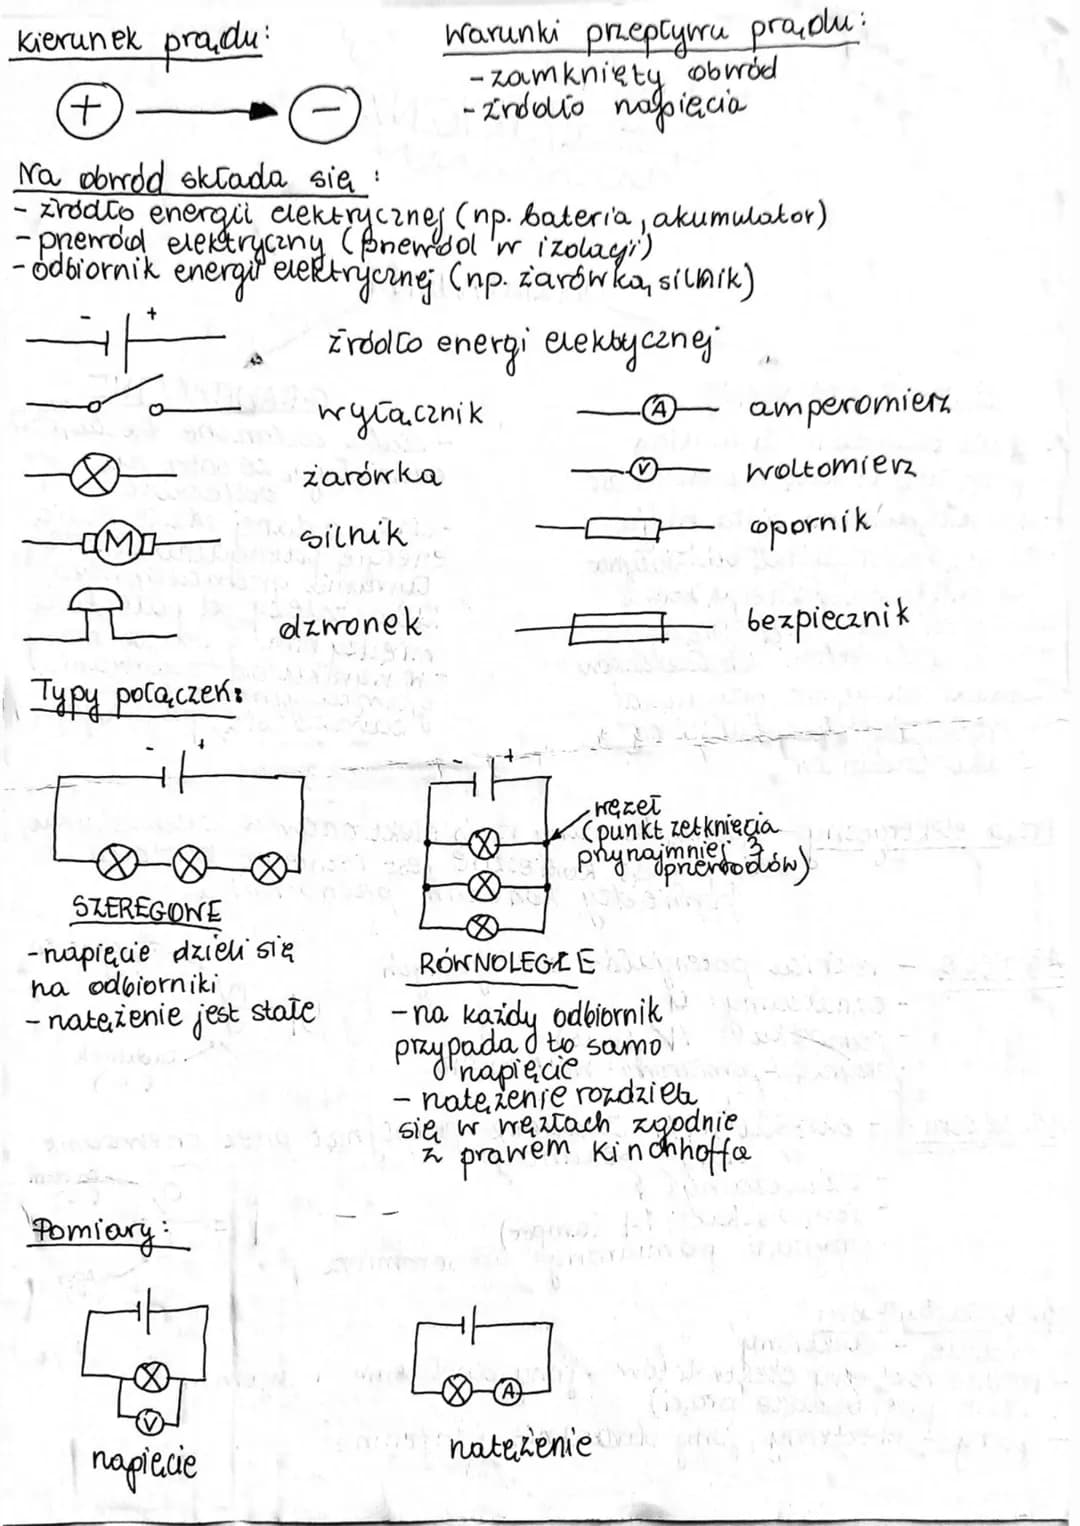 Kierunek prądu:
+ -
Warunki przepływu prądu:
- zamknięty obwód
- źródło napięcia
Na obwód składa się :
- źródło energii elektrycznej (np. bateria, akumulator)
- przewód elektryczny (przewód w izolacji)
- odbiornik energii elektrycznej (np. żarówka, silnik)
- +
źródło energi elektycznej
wyłącznik
A amperomierz
żarówka
V woltomierz
M silnik
opornik
dzwonek
bezpiecznik
Typy połączeń:
- +
SZEREGOWE
- napięcie dzieli się
na odbiorniki
- natężenie jest stałe
- +
węzeł
(punkt zetknięcia
przynajmniej 3
przewodów)
RÓWNOLEGŁE
- na każdy odbiornik
przypada to samo
napięcie
- natężenie rozdziela
się w węzłach zgodnie
z prawem Kirchhoffa
Pomiary:
V
napięcie
A
natężenie